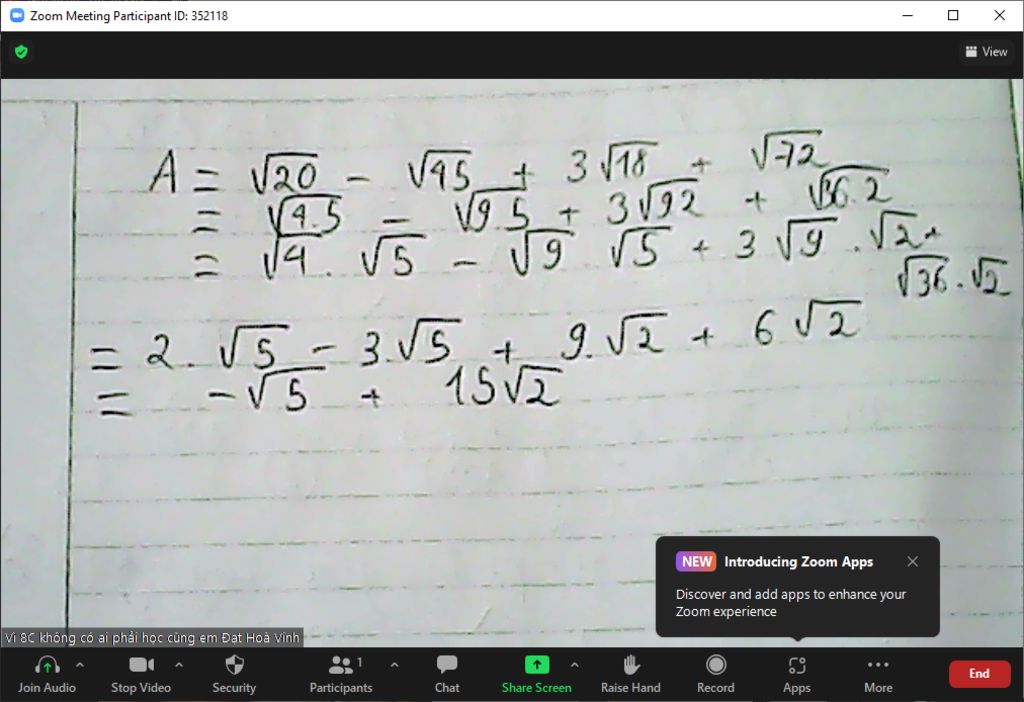 Zoom Meeting Participant ID: 352118
View
A = √20 - √45 + 3√18 + √72
= √4.5 - √9.5 + 3√9.2 + √36.2
= √4 . √5 - √9 √5 + 3√9 . √2 +
√36 . √2
= 2 . √5 - 3.√5 + 9.√2 + 6√2
= -√5 + 15√2
NEW Introducing Zoom Apps
Discover and add apps to enhance your
Zoom experience
Vì 8C không có ai phải học cùng em Đạt Hoà Vinh
Join Audio Stop Video Security Participants 1 Chat Share Screen Raise Hand Record Apps More End